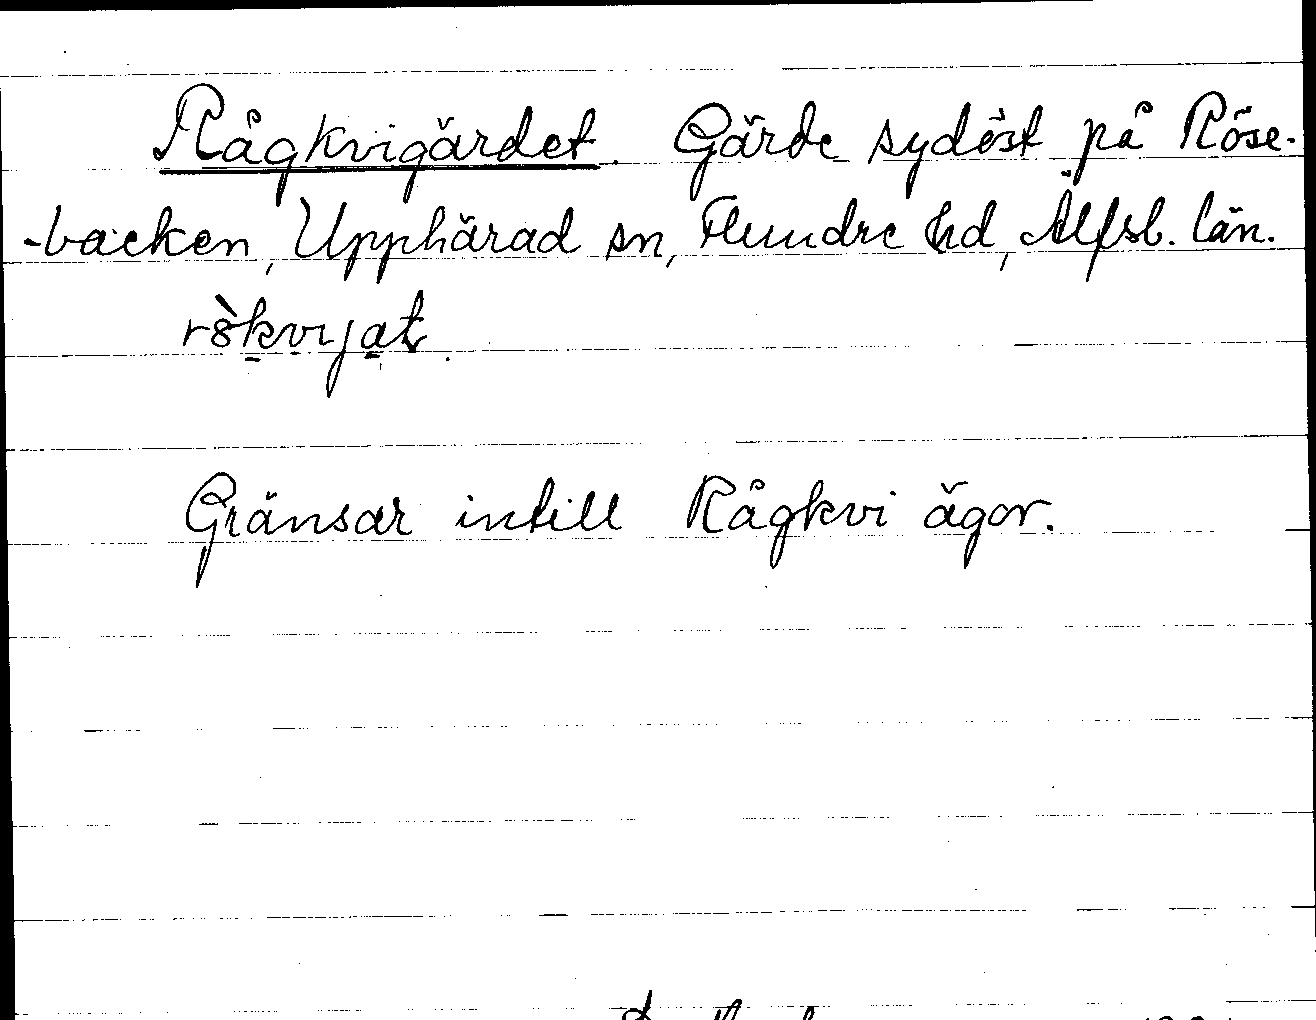 Rågkvigärdet. Gärde sydöst på Röse-
-backen, Upphärad sn, Flundre hd, Älfsb. län.
Gränsar intill Rågkvi ägor.